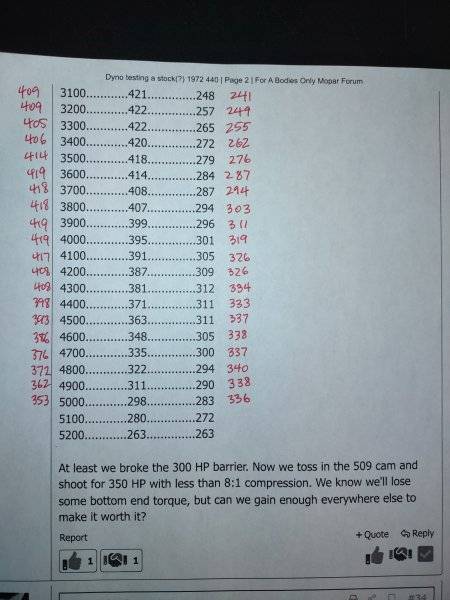 Dyno testing a stock(?) 1972 440 | Page 2 | For A Bodies Only Mopar Forum
409 3100............421..............248 241
409 3200............422..............257 249
405 3300............422..............265 255
406 3400............420..............272 262
414 3500............418..............279 276
419 3600............414..............284 287
418 3700............408..............287 294
418 3800............407..............294 303
419 3900............399..............296 311
419 4000............395..............301 319
417 4100............391..............305 326
408 4200............387..............309 326
408 4300............381..............312 334
398 4400............371..............311 333
393 4500............363..............311 337
386 4600............348..............305 338
376 4700............335..............300 337
372 4800............322..............294 340
362 4900............311..............290 338
353 5000............298..............283 336
5100............280..............272
5200............263..............263
At least we broke the 300 HP barrier. Now we toss in the 509 cam and
shoot for 350 HP with less than 8:1 compression. We know we'll lose
some bottom end torque, but can we gain enough everywhere else to
make it worth it?
Report + Quote Reply
1 1
#34